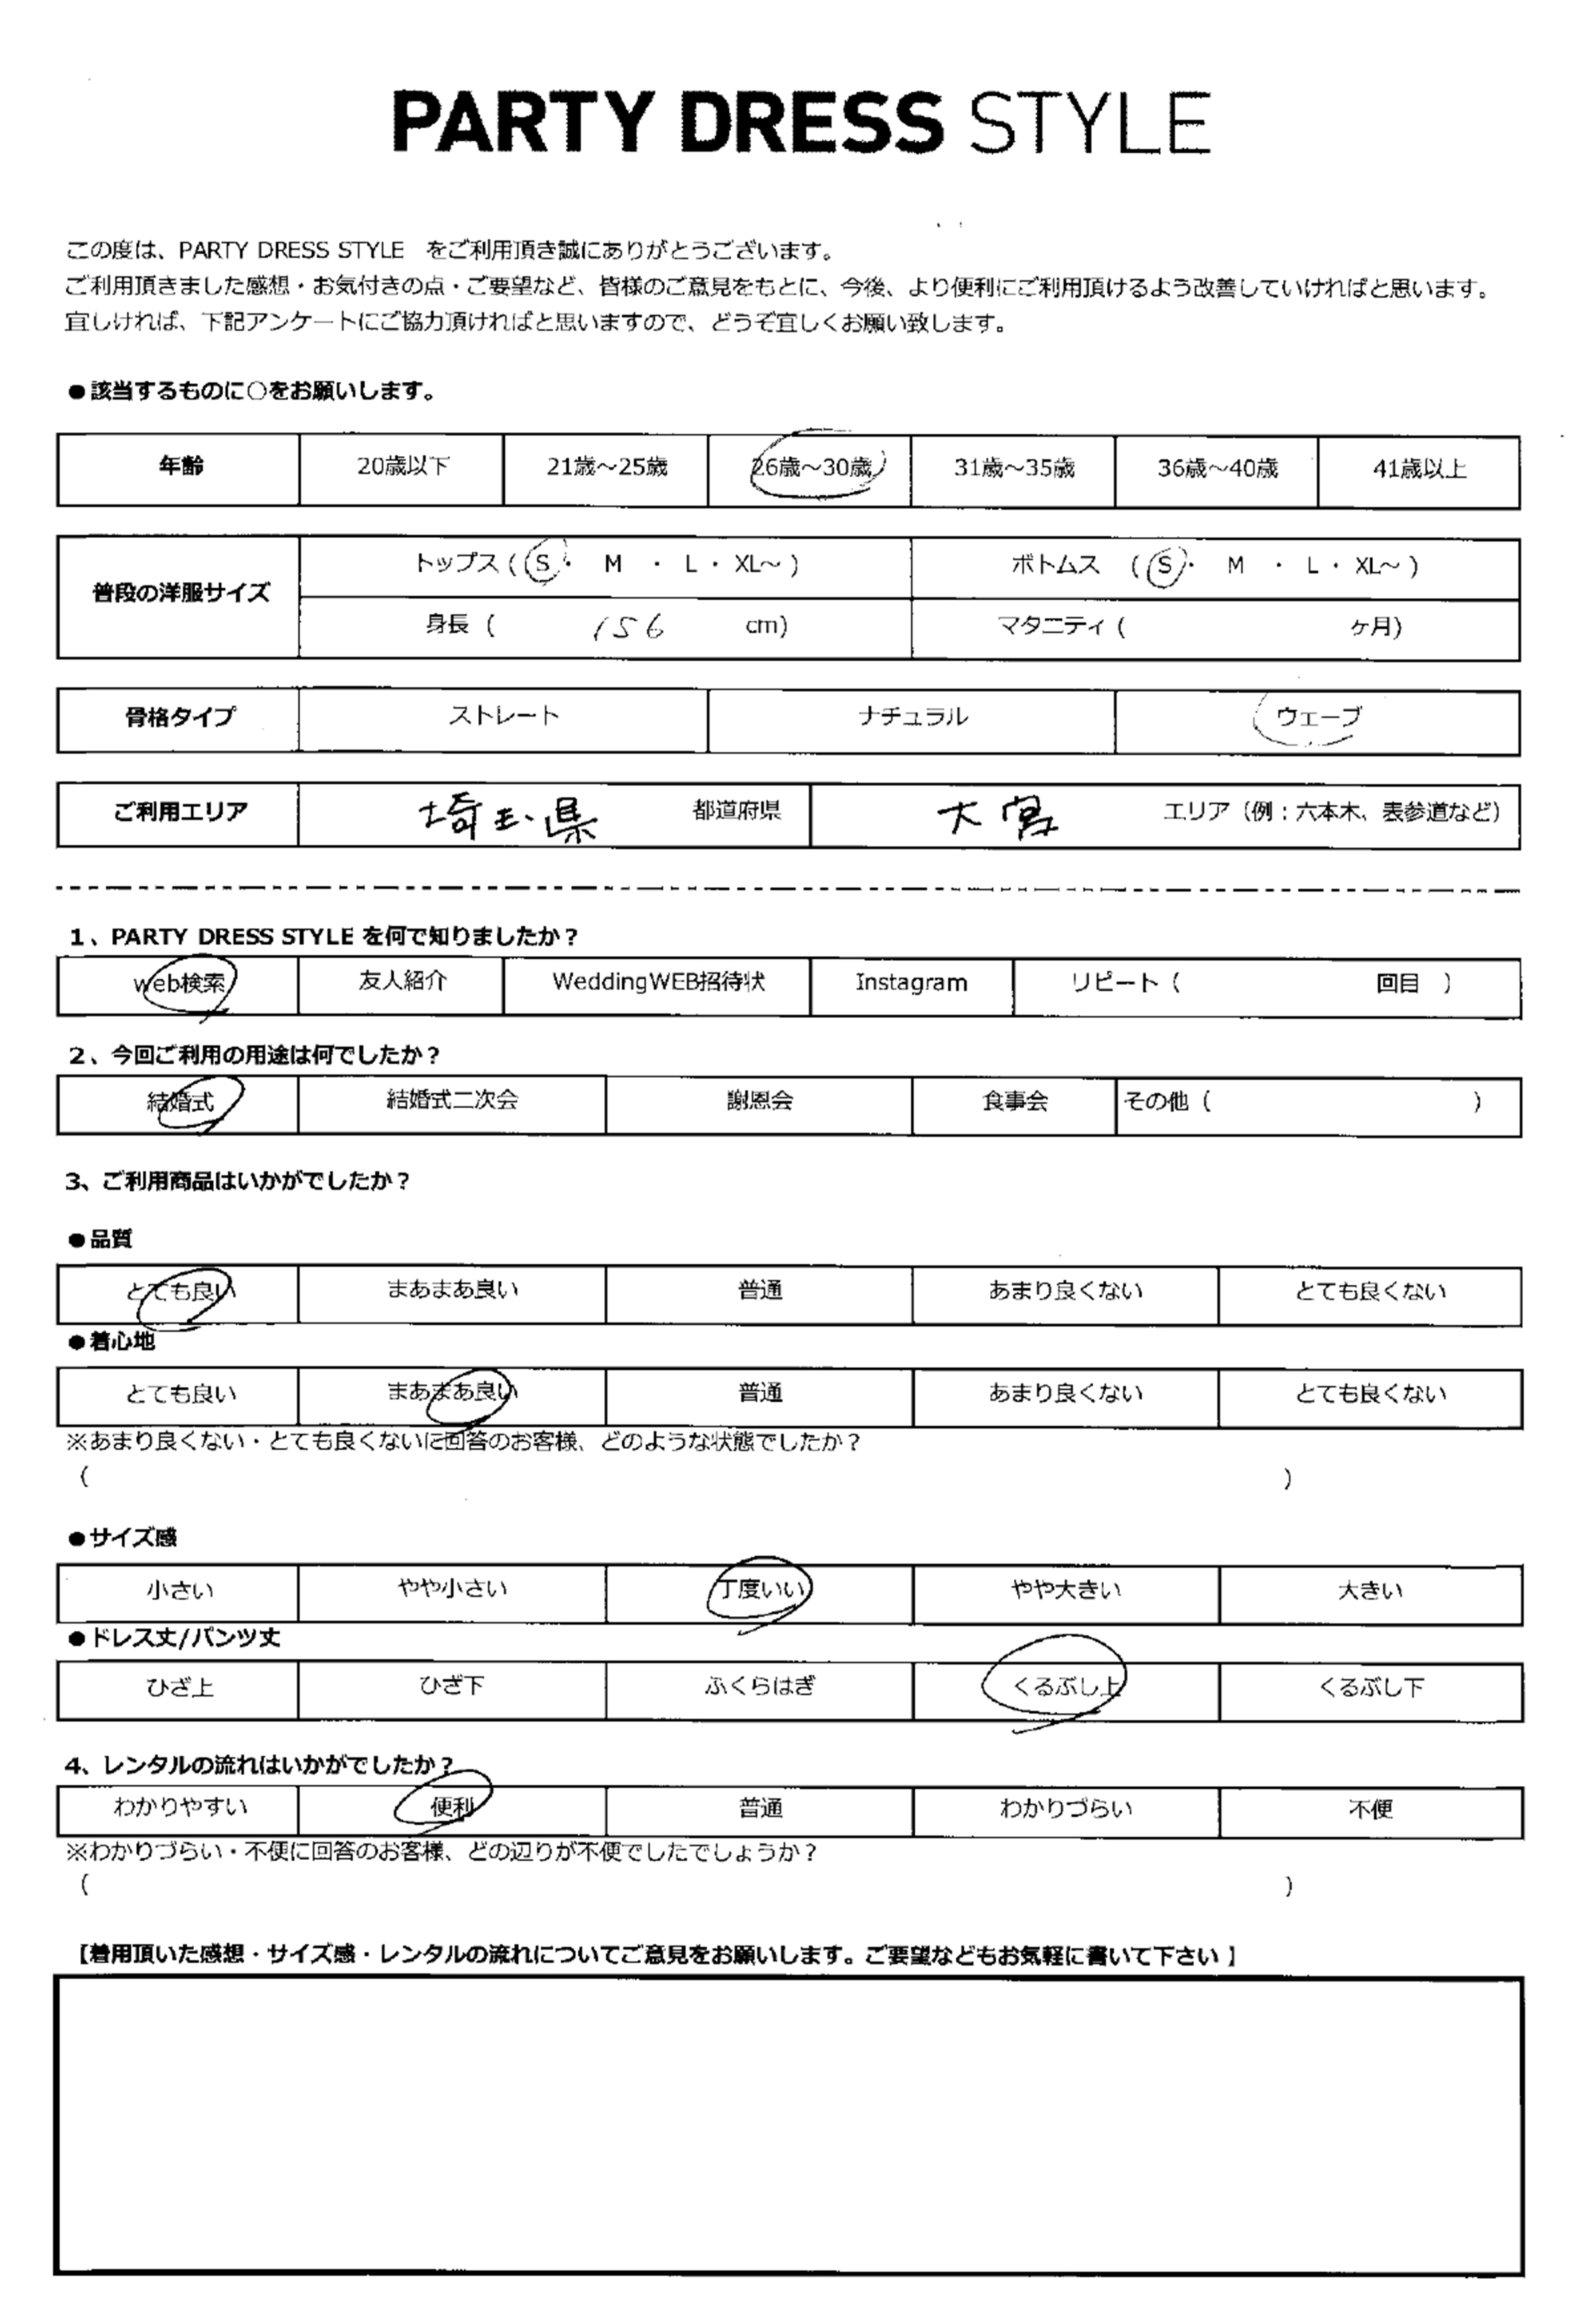 PARTY DRESS STYLE
この度は、PARTY DRESS STYLE をご利用頂き誠にありがとうございます。
ご利用頂きました感想・お気付きの点・ご要望など、皆様のご意見をもとに、今後、より便利にご利用頂けるよう改善していければと思います。
宜しければ、下記アンケートにご協力頂ければと思いますので、どうぞ宜しくお願い致します。
●該当するものに○をお願いします。
年齢 20歳以下 21歳～25歳 26歳～30歳 31歳～35歳 36歳～40歳 41歳以上
普段の洋服サイズ トップス ( S ・ M ・ L ・ XL～ ) ボトムス ( S ・ M ・ L ・ XL～ )
身長 ( 156 cm) マタニティ ( ヶ月)
骨格タイプ ストレート ナチュラル ウェーブ
ご利用エリア 埼玉県 都道府県 大宮 エリア（例：六本木、表参道など）
1、PARTY DRESS STYLE を何で知りましたか？
web検索 友人紹介 WeddingWEB招待状 Instagram リピート（ 回目 ）
2、今回ご利用の用途は何でしたか？
結婚式 結婚式二次会 謝恩会 食事会 その他（ ）
3、ご利用商品はいかがでしたか？
●品質
とても良い まあまあ良い 普通 あまり良くない とても良くない
●着心地
とても良い まあまあ良い 普通 あまり良くない とても良くない
※あまり良くない・とても良くないに回答のお客様、どのような状態でしたか？
（ ）
●サイズ感
小さい やや小さい 丁度いい やや大きい 大きい
●ドレス丈/パンツ丈
ひざ上 ひざ下 ふくらはぎ くるぶし上 くるぶし下
4、レンタルの流れはいかがでしたか？
わかりやすい 便利 普通 わかりづらい 不便
※わかりづらい・不便に回答のお客様、どの辺りが不便でしたでしょうか？
（ ）
【着用頂いた感想・サイズ感・レンタルの流れについてご意見をお願いします。ご要望などもお気軽に書いて下さい 】